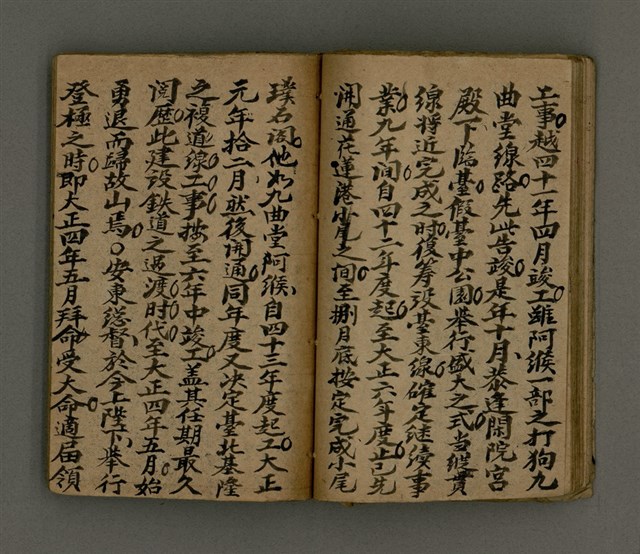 工事越四十一年四月竣工雖阿猴一部之打狗九
曲堂線路先此告竣是年十月恭逢閑院宮
殿下臨臺假臺中公園舉行盛大之式当縱貫
線將近完成之時復籌設臺東線確定継續事
業九年間自四十二年度起至大正六年度止已先
開通花蓮港小尾之間至捌月底按定完成小尾
璞石閣他如九曲堂阿猴自四十三年度起工大正
元年拾二月昽後開通同年度又決定臺北基隆
之複道線工事按至六年中竣工盖其任期最久
閱歷此建設鉄道之過渡时代至大正四年五月始
勇退而歸故山焉〇安東総督於今上陛下舉行
登極之時即大正四年五月拜命受大命適届領